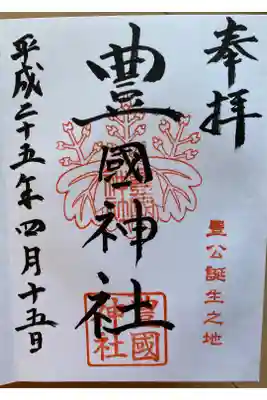 奉拝
豊公誕生之地
豊國神社
豊國
神社
平成二十五年四月十五日